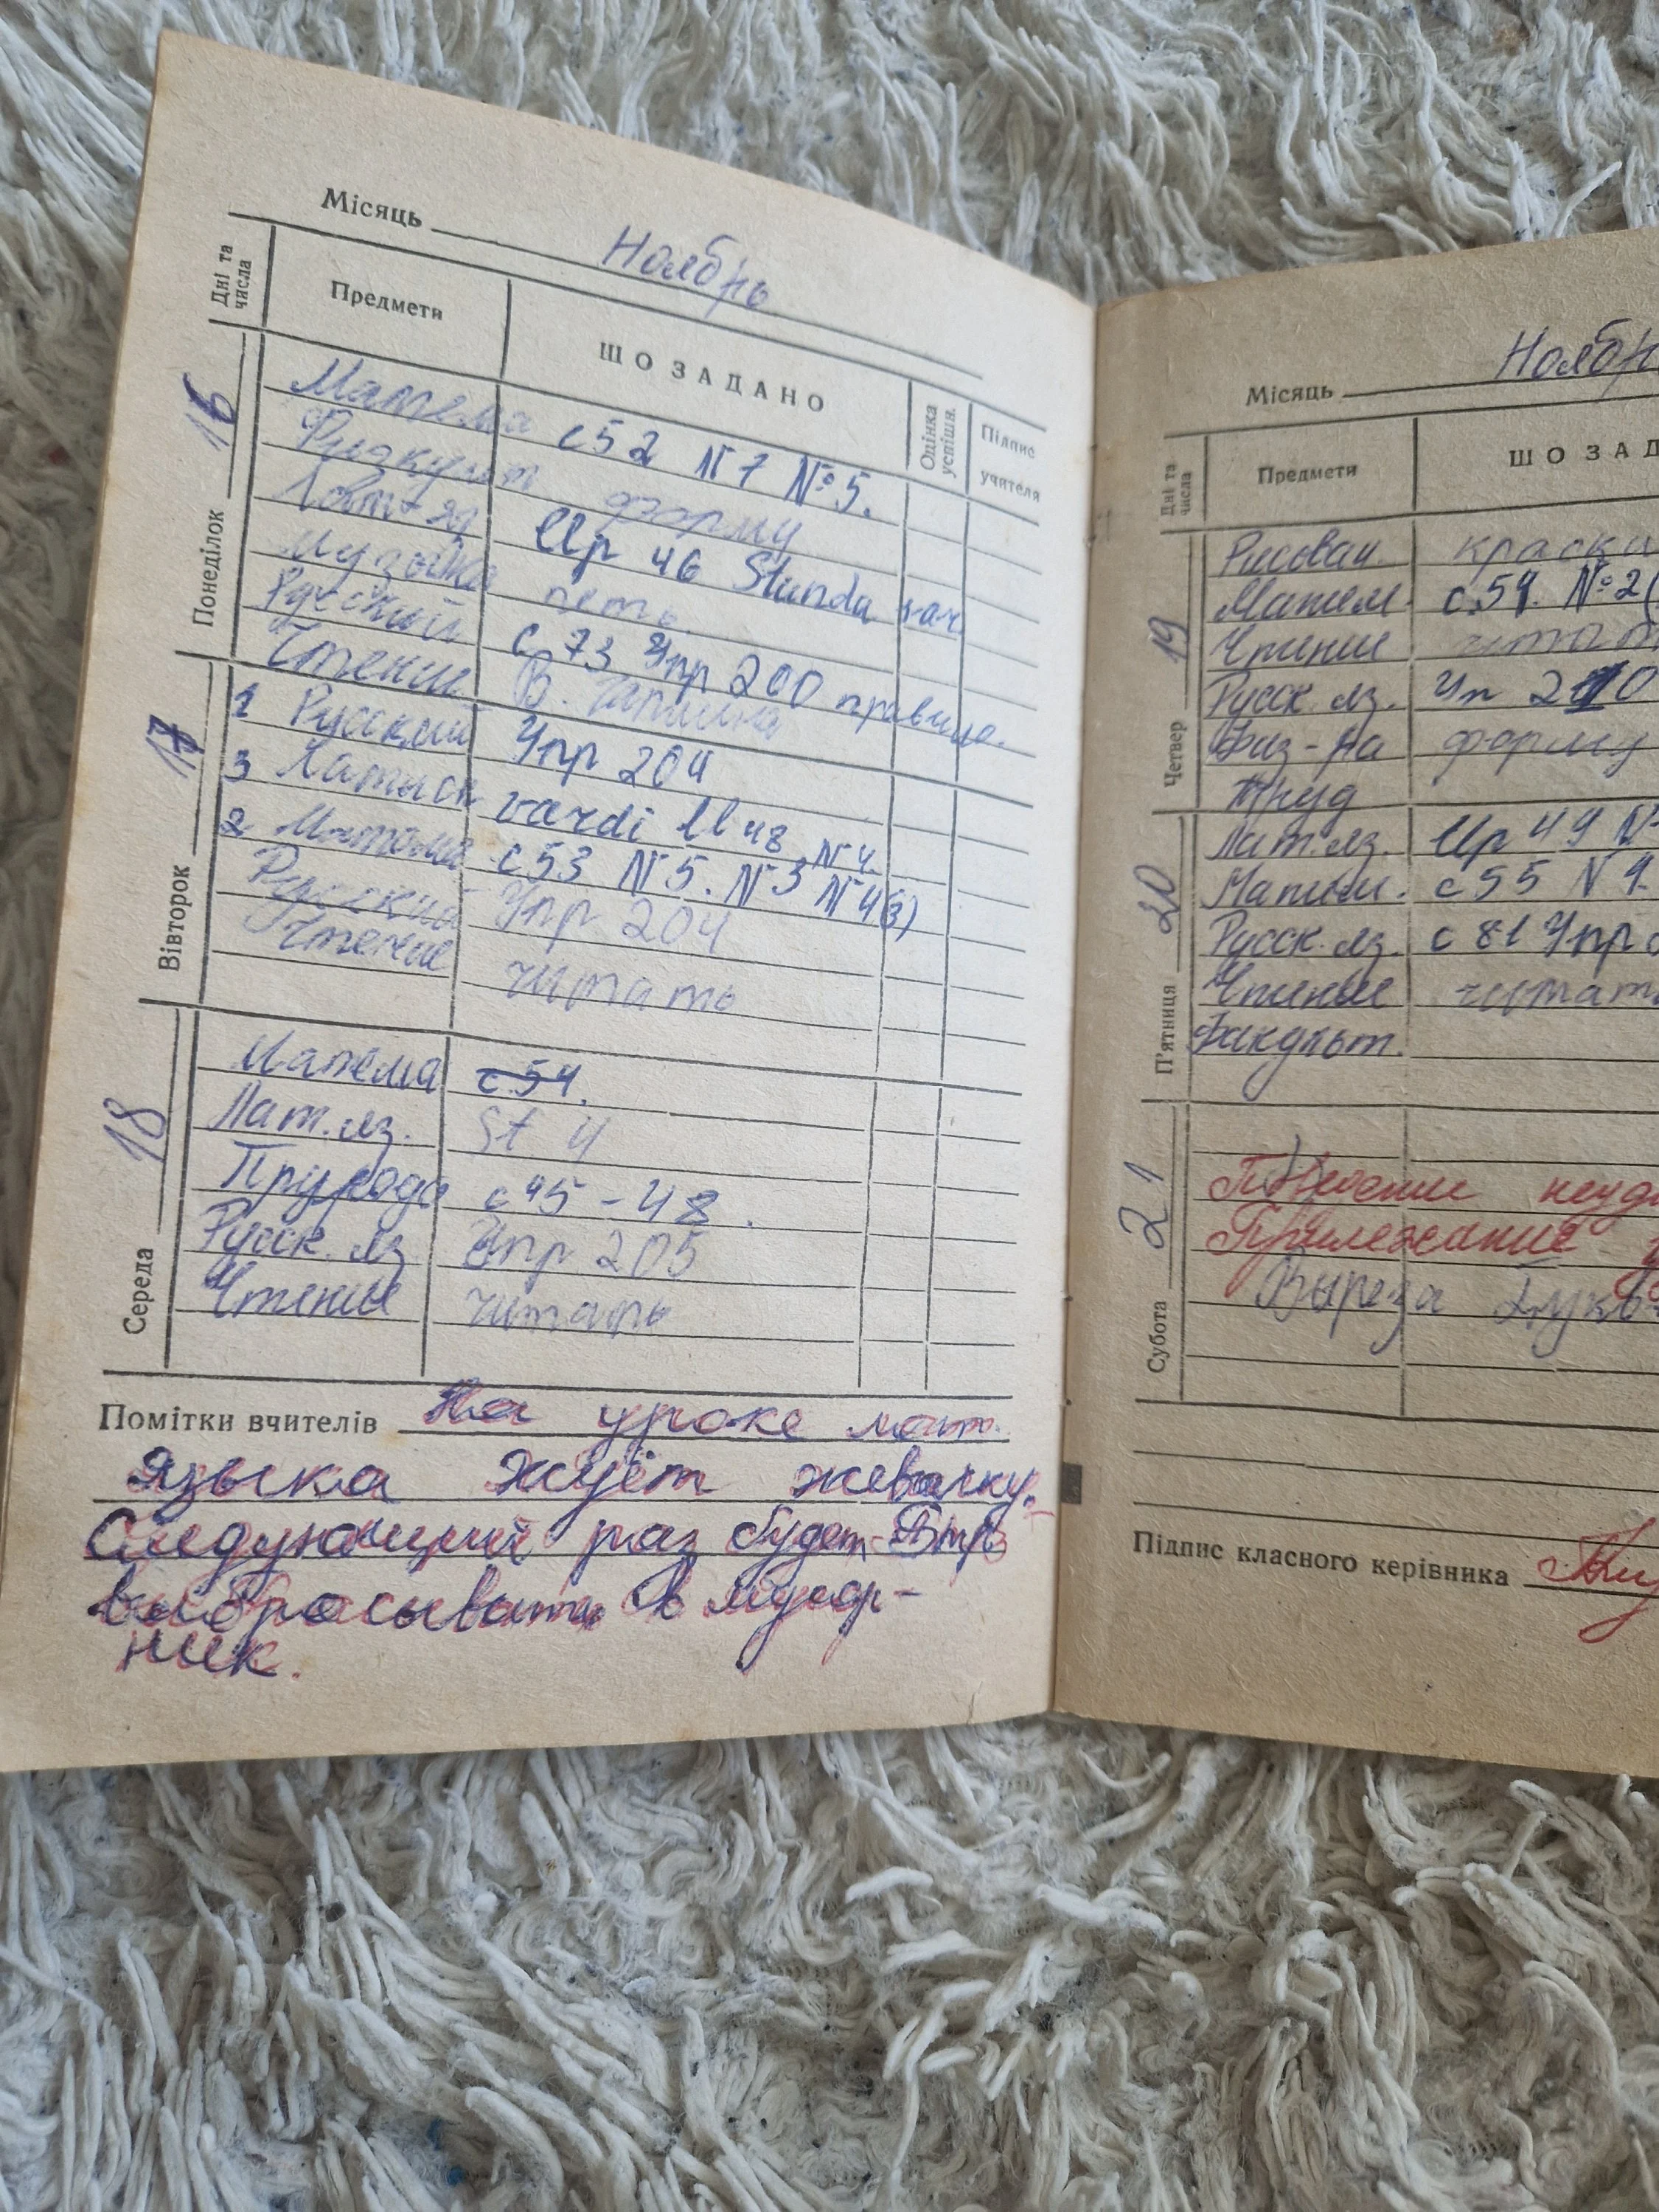 Місяць Ноябрь
Дні та числа Предмети ШО ЗАДАНО Оцінка успішн. Підпис учителя
Понеділок 16
Матема с52 N7 №5.
Физкульт форму
Латв яз Up 46 Stunda
Музыка петь
Русский с 73 Упр 200 правило.
Чтение В.
Вівторок 17
1 Русский Упр 204
3 Латышск vārdi U 48 N4.
2 Матема с53 N5. N3 N4(3)
Русский Упр 204
Чтение читать
Середа 18
Матема с.54.
Лат. яз. St U
Природа с45-48.
Русск. яз Упр 205
Чтение читать
Помітки вчителів На уроке лат.
языка жуёт жевачку.
Следующий раз будет
выбрасывать в мусор-
ник.
Місяць Ноябр
Дні та числа Предмети ШО ЗАД
Четвер 19
Рисован. краски
Матем. с.54. №2(
Чтение читат
Русск. яз. Уп 210
Физ-ра форму
Труд
П'ятниця 20
Лат. яз. Up 49 N
Матем. с55 N4.
Русск. яз. с 81 Упр
Чтение читат
Факульт.
Субота 21
Поведение неуд
Прилежание
Выреза букв
Підпис класного керівника